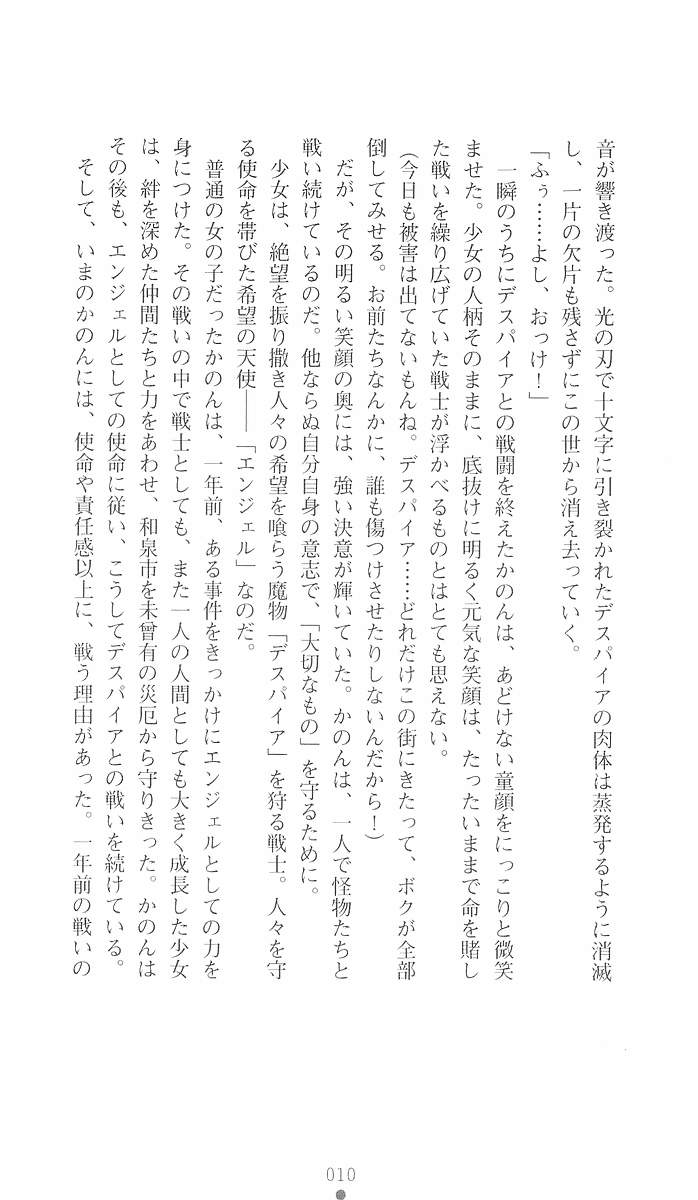 音が響き渡った。光の刃で十文字に引き裂かれたデスパイアの肉体は蒸発するように消滅
し、一片の欠片も残さずにこの世から消え去っていく。
「ふぅ……よし、おっけ！」
一瞬のうちにデスパイアとの戦闘を終えたかのんは、あどけない童顔をにっこりと微笑
ませた。少女の人柄そのままに、底抜けに明るく元気な笑顔は、たったいままで命を賭し
た戦いを繰り広げていた戦士が浮かべるものとはとても思えない。
（今日も被害は出てないもんね。デスパイア……どれだけこの街にきたって、ボクが全部
倒してみせる。お前たちなんかに、誰も傷つけさせたりしないんだから！）
だが、その明るい笑顔の奥には、強い決意が輝いていた。かのんは、一人で怪物たちと
戦い続けているのだ。他ならぬ自分自身の意志で、「大切なもの」を守るために。
少女は、絶望を振り撒き人々の希望を喰らう魔物「デスパイア」を狩る戦士。人々を守
る使命を帯びた希望の天使――「エンジェル」なのだ。
普通の女の子だったかのんは、一年前、ある事件をきっかけにエンジェルとしての力を
身につけた。その戦いの中で戦士としても、また一人の人間としても大きく成長した少女
は、絆を深めた仲間たちと力をあわせ、和泉市を未曾有の災厄から守りきった。かのんは
その後も、エンジェルとしての使命に従い、こうしてデスパイアとの戦いを続けている。
そして、いまのかのんには、使命や責任感以上に、戦う理由があった。一年前の戦いの
010